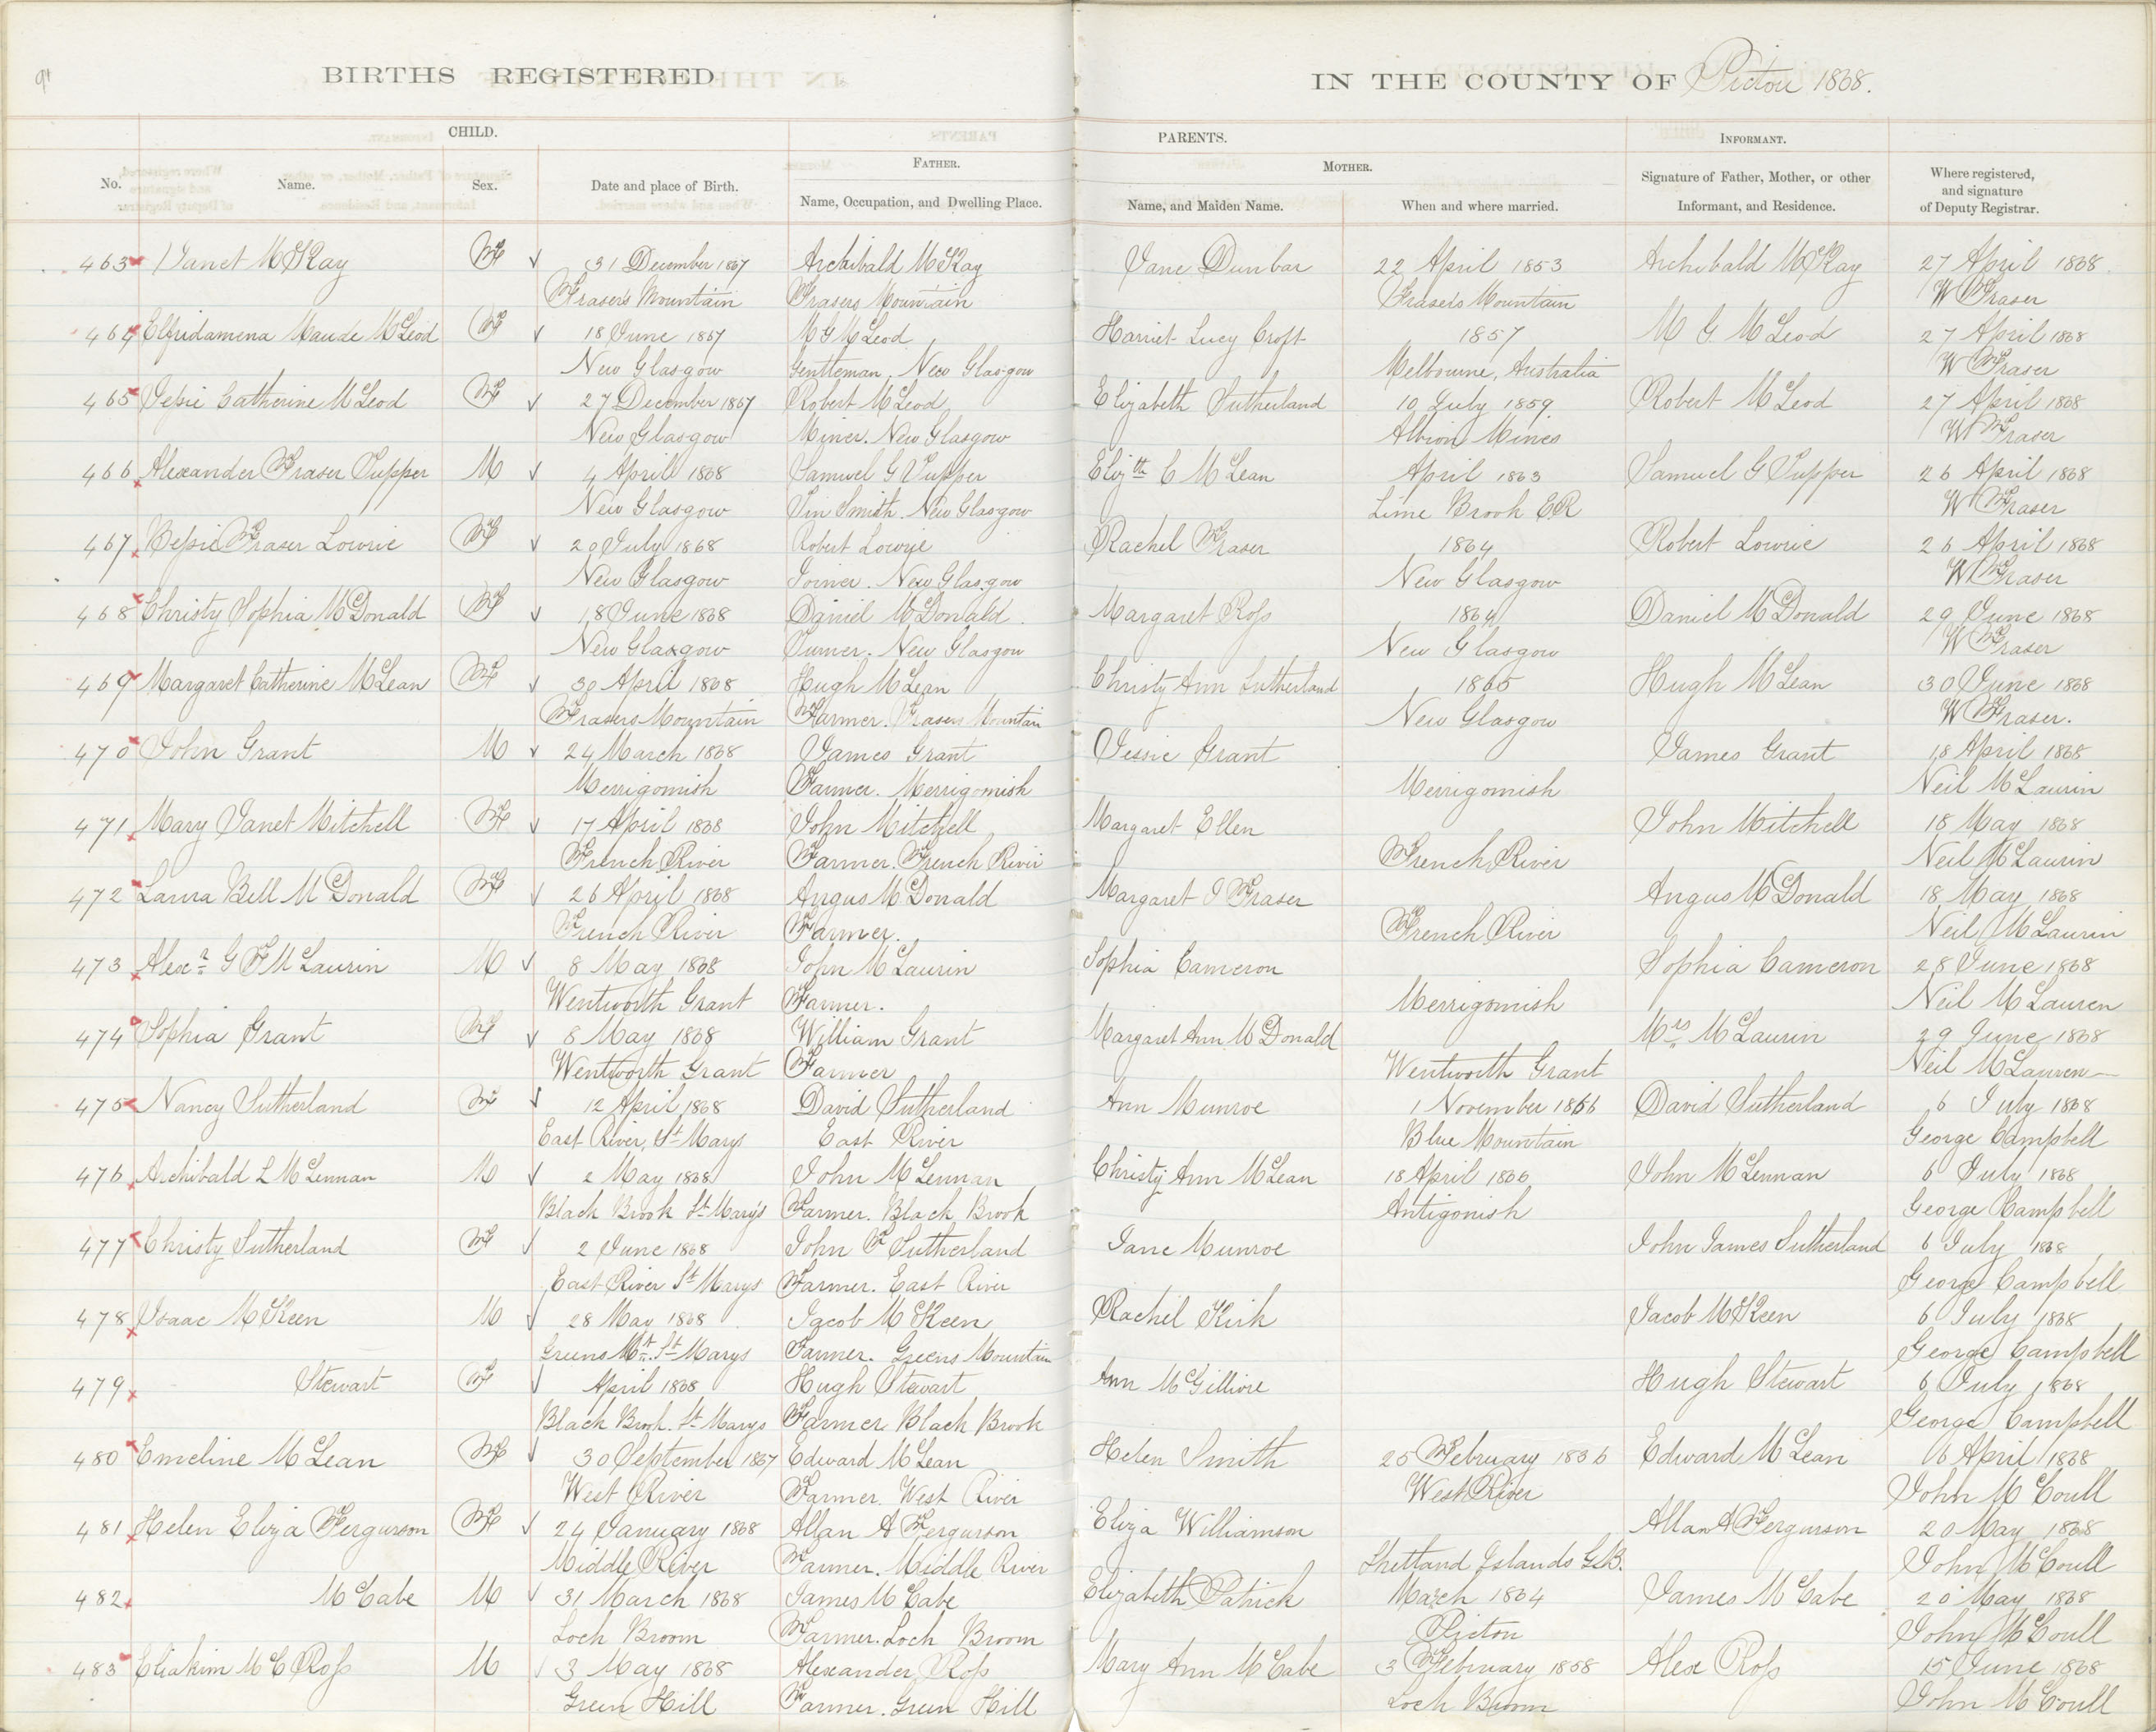 91
BIRTHS REGISTERED IN THE COUNTY OF Pictou 1868.
CHILD. PARENTS. INFORMANT.
FATHER. MOTHER.
No. Name. Sex. Date and place of Birth. Name, Occupation, and Dwelling Place. Name, and Maiden Name. When and where married. Signature of Father, Mother, or other Informant, and Residence. Where registered, and signature of Deputy Registrar.
463 Janet McKay F 31 December 1867 Archibald McKay Jane Dunbar 22 April 1853 Archibald McKay 27 April 1868
Frasers Mountain Frasers Mountain Frasers Mountain W Fraser
464 Elfridamena Maude McLeod F 18 June 1867 M G McLeod Harriet Lucy Croft 1857 M G McLeod 27 April 1868
New Glasgow Gentleman. New Glasgow Melbourne, Australia W Fraser
465 Jessie Catherine McLeod F 27 December 1867 Robert McLeod Elizabeth Sutherland 10 July 1859 Robert McLeod 27 April 1868
New Glasgow Miner. New Glasgow Albion Mines W Fraser
466 Alexander Fraser Tupper M 4 April 1868 Samuel G Tupper Elizth C McLean April 1863 Samuel G Tupper 26 April 1868
New Glasgow Tin Smith. New Glasgow Lime Brook E R W Fraser
467 Bessie Fraser Lowrie F 20 July 1868 Robert Lowrie Rachel Fraser 1864 Robert Lowrie 26 April 1868
New Glasgow Joiner. New Glasgow New Glasgow W Fraser
468 Christy Sophia McDonald F 18 June 1868 Daniel McDonald Margaret Ross 1864 Daniel McDonald 29 June 1868
New Glasgow Turner. New Glasgow New Glasgow W Fraser
469 Margaret Catherine McLean F 30 April 1868 Hugh McLean Christy Ann Sutherland 1865 Hugh McLean 30 June 1868
Frasers Mountain Farmer. Frasers Mountain New Glasgow W Fraser.
470 John Grant M 24 March 1868 James Grant Jessie Grant James Grant 18 April 1868
Merrigomish Farmer. Merrigomish Merrigomish Neil McLaurin
471 Mary Janet Mitchell F 17 April 1868 John Mitchell Margaret Ellen John Mitchell 18 May 1868
French River Farmer. French River French River Neil McLaurin
472 Laura Bell McDonald F 26 April 1868 Angus McDonald Margaret J Fraser Angus McDonald 18 May 1868
French River Farmer. French River Neil McLaurin
473 Alexr G F McLaurin M 8 May 1868 John McLaurin Sophia Cameron Sophia Cameron 28 June 1868
Wentworth Grant Farmer. Merrigomish Neil McLauren
474 Sophia Grant F 8 May 1868 William Grant Margaret Ann McDonald Mrs McLaurin 29 June 1868
Wentworth Grant Farmer Wentworth Grant Neil McLauren
475 Nancy Sutherland F 12 April 1868 David Sutherland Ann Munroe 1 November 1866 David Sutherland 6 July 1868
East River, St Marys East River Blue Mountain George Campbell
476 Archibald L McLennan M 2 May 1868 John McLennan Christy Ann McLean 18 April 1866 John McLennan 6 July 1868
Black Brook St Mary's Farmer. Black Brook Antigonish George Campbell
477 Christy Sutherland F 2 June 1868 John F Sutherland Jane Munroe John James Sutherland 6 July 1868
East River St Marys Farmer. East River George Campbell
478 Isaac McKeen M 28 May 1868 Jacob McKeen Rachel Kirk Jacob McKeen 6 July 1868
Greens Mtn. St Marys Farmer. Greens Mountain George Campbell
479 Stewart F April 1868 Hugh Stewart Ann McGillivre Hugh Stewart 6 July 1868
Black Brook. St Marys Farmer Black Brook George Campbell
480 Emeline McLean F 30 September 1867 Edward McLean Helen Smith 25 February 1836 Edward McLean 16 April 1868
West River Farmer. West River West River John McCoull
481 Helen Eliza Fergurson F 24 January 1868 Allan A Fergurson Eliza Williamson Allan A Fergurson 20 May 1868
Middle River Farmer. Middle River Shetland Islands G.B. John McCoull
482 McCabe M 31 March 1868 James McCabe Elizabeth Patrick March 1864 James McCabe 20 May 1868
Loch Broom Farmer. Loch Broom Pictou John McCoull
483 Eliakim McC Ross M 3 May 1868 Alexander Ross Mary Ann McCabe 3 February 1858 Alex Ross 15 June 1868
Green Hill Farmer. Green Hill Loch Broom John McCoull